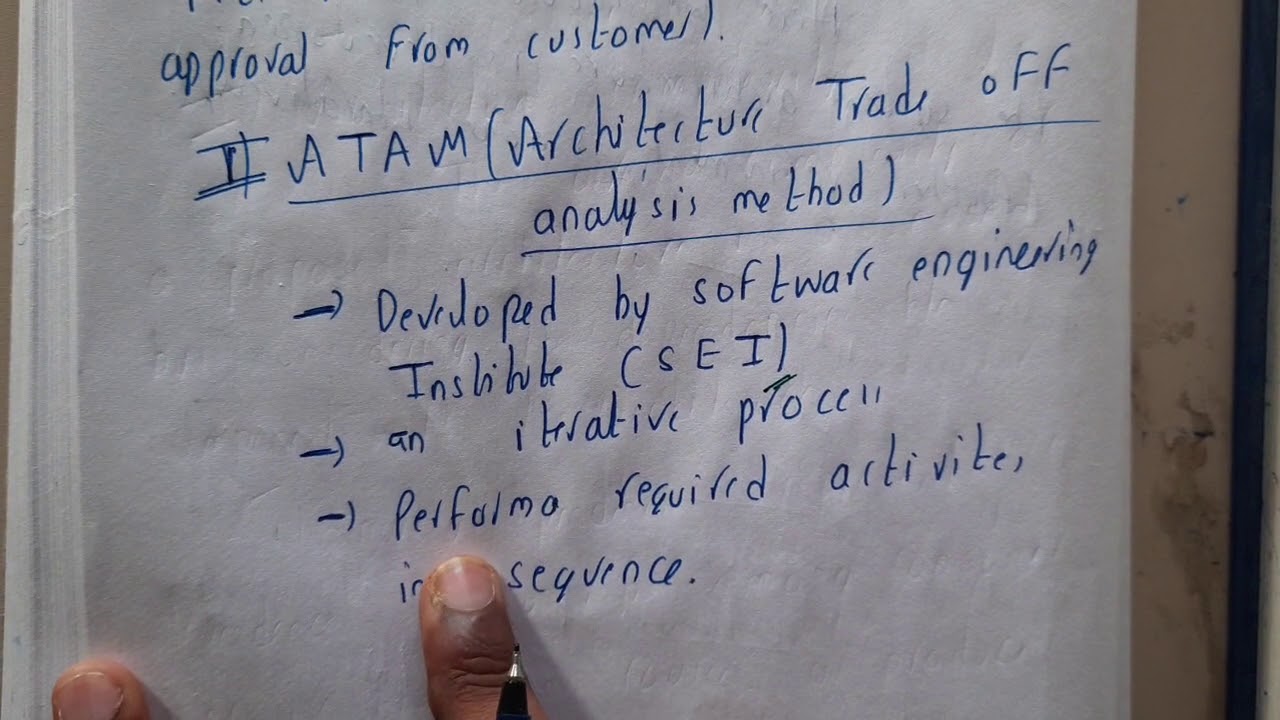 approval from customer).
II ATAM (Architecture Trade off
analysis method)
→ Developed by software engineering
Institute (SEI)
→ an iterative process
→ Performa required activites
in sequence.